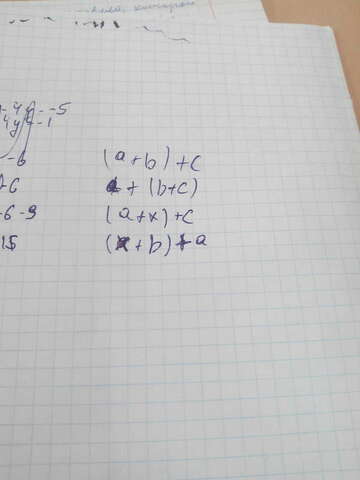 -4y = -5
4y = -1
-6
(a+b)+c
+6
a+(b+c)
-6-9
(a+x)+c
15
(x+b)+a